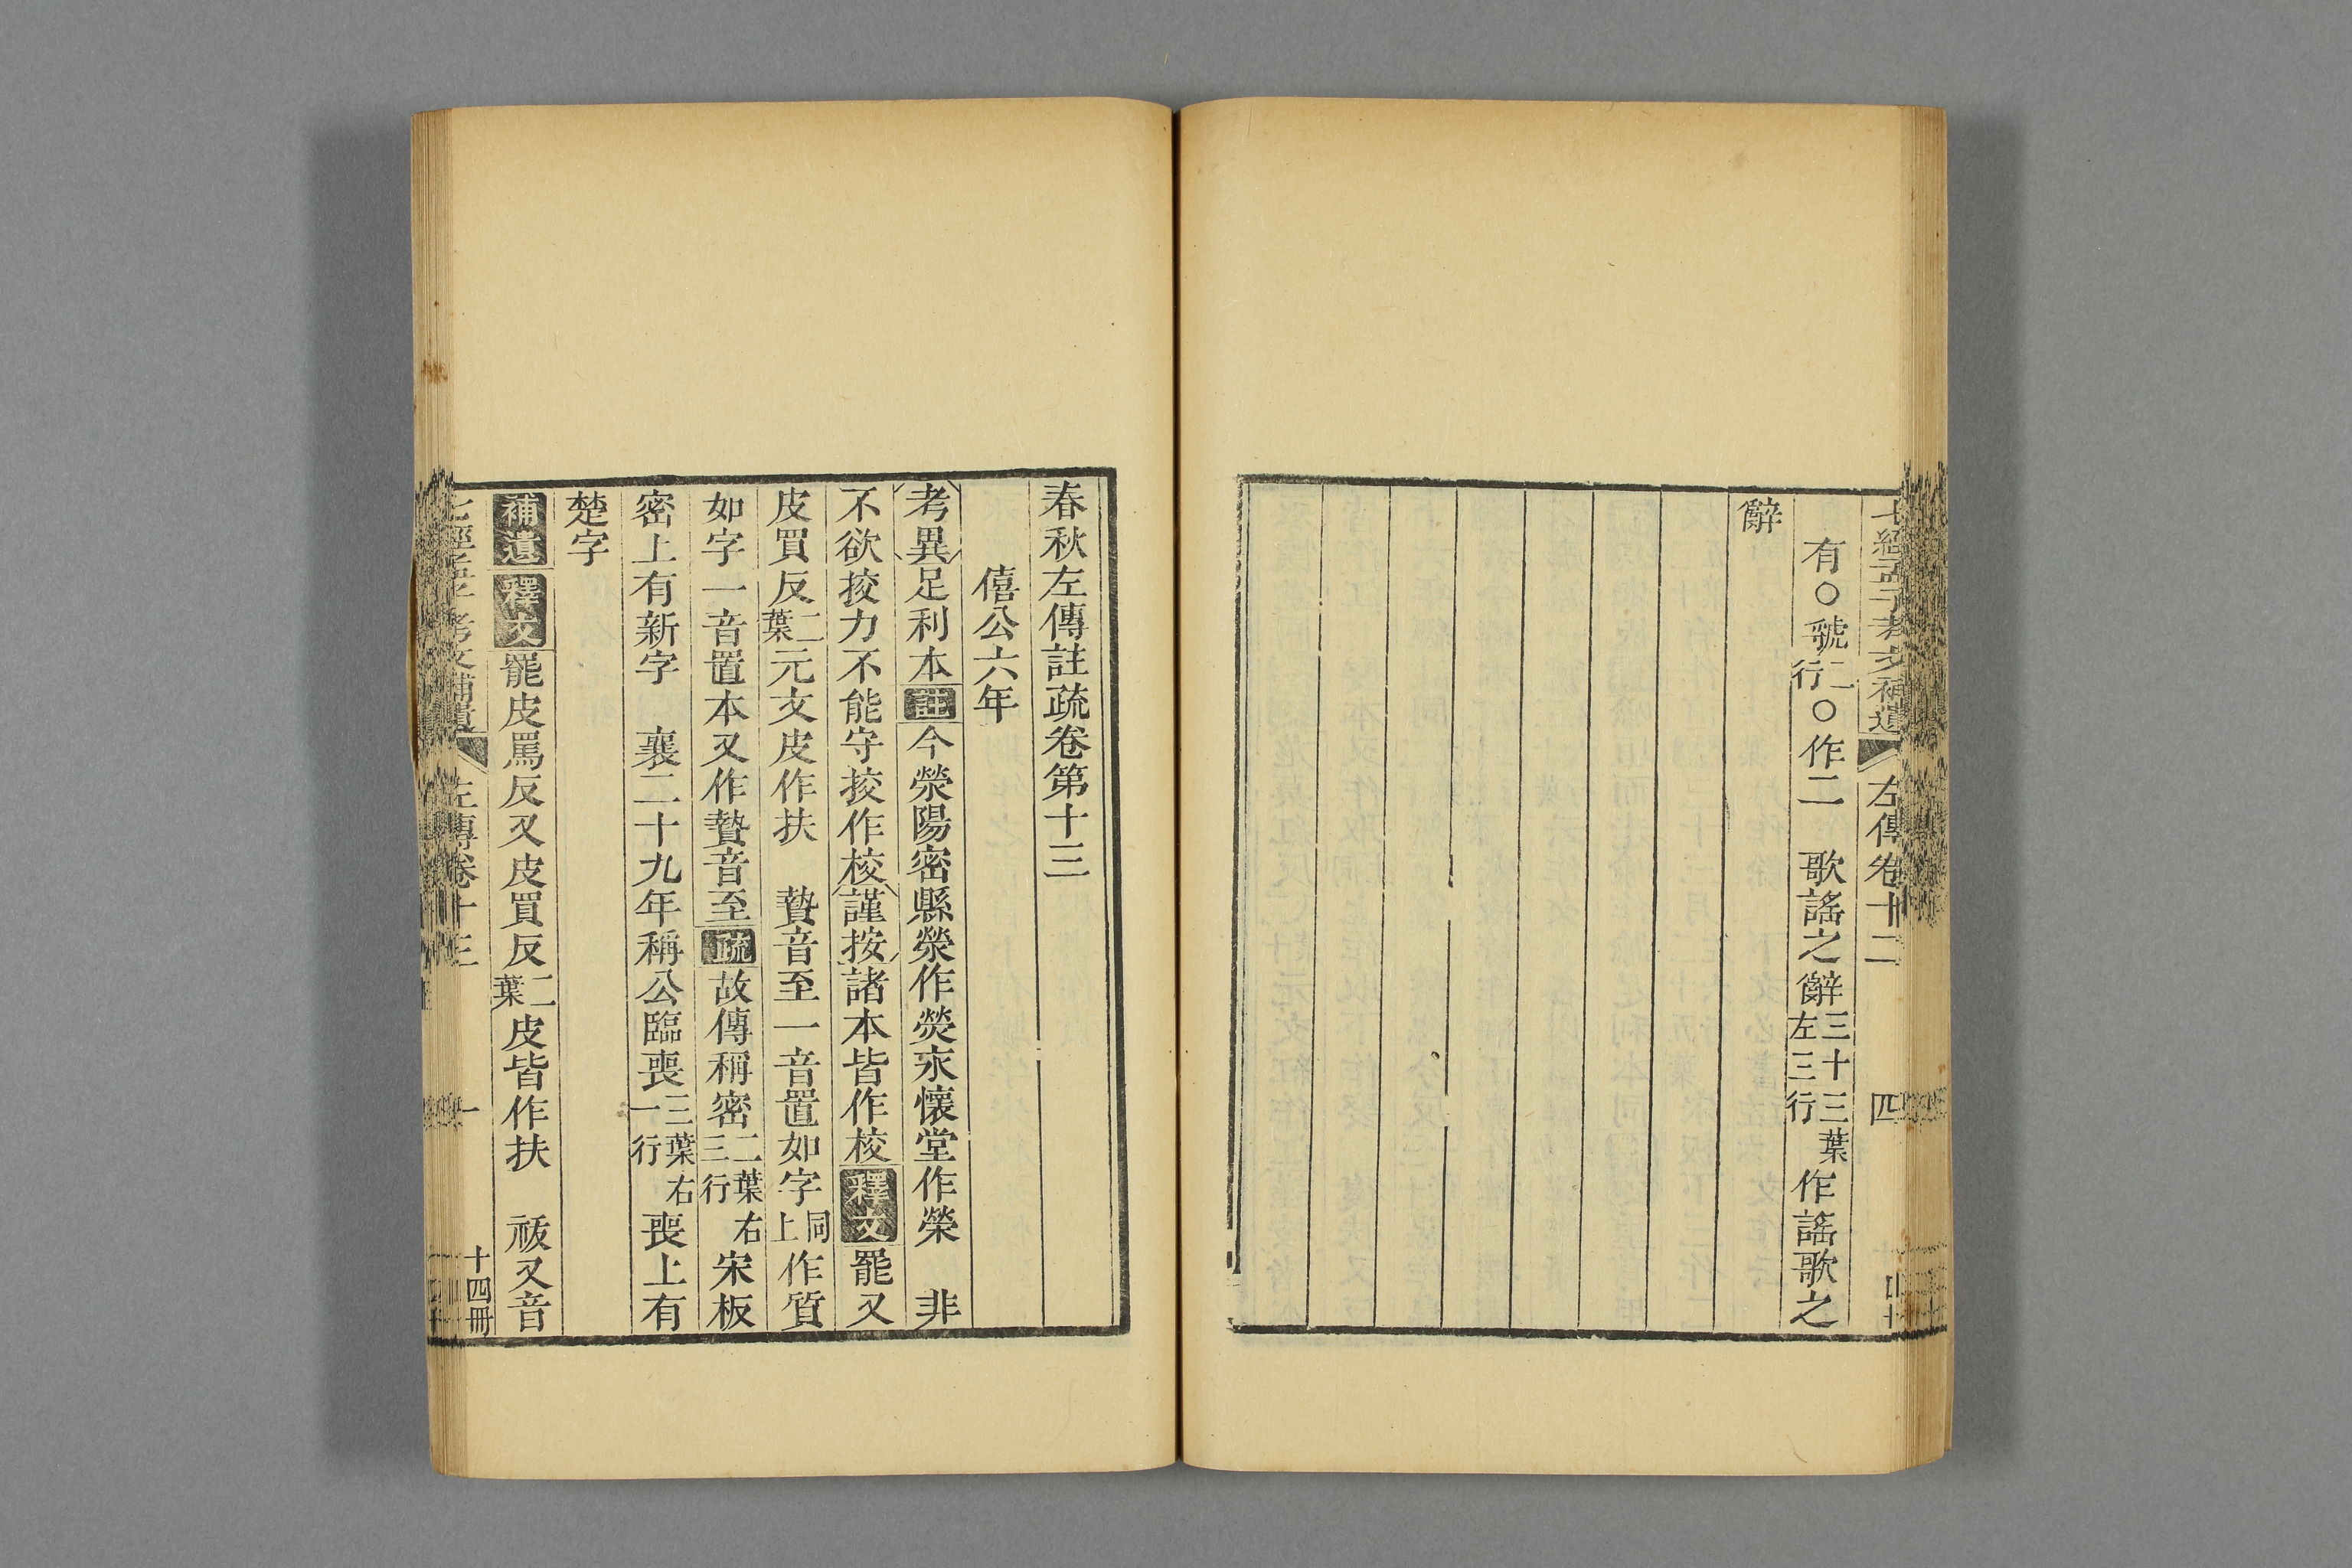 七經孟子考文補遺 左傳卷十二 四
有○虢二行○作二 歌謠之辭三十三葉左三行作謠歌之
辭
春秋左傳註疏卷第十三
僖公六年
考異足利本註今滎陽密縣滎作熒永懷堂作榮 非
不欲挍力不能守挍作校謹按諸本皆作校釋文罷又
皮買反二葉元文皮作扶 贄音至一音置如字同上作質
如字一音置本又作贄音至疏故傳稱密二葉右三行宋板
密上有新字 襄二十九年稱公臨喪三葉右一行喪上有
楚字
補遺釋文罷皮罵反又皮買反二葉皮皆作扶 祓又音
七經孟子考文補遺 左傳卷十三 一 十四冊